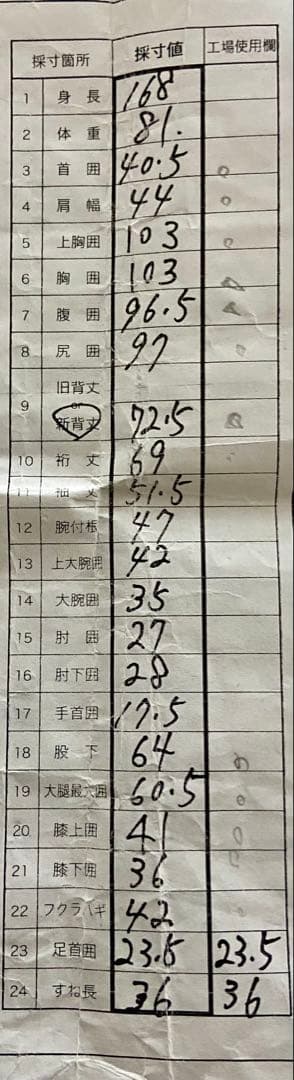 採寸箇所 採寸値 工場使用欄
1 身長 168
2 体重 81.
3 首囲 40.5
4 肩幅 44
5 上胸囲 103
6 胸囲 103
7 腹囲 96.5
8 尻囲 97
旧背丈
9 or
新背丈 72.5
10 裄丈 69
11 袖丈 51.5
12 腕付根 47
13 上大腕囲 42
14 大腕囲 35
15 肘囲 27
16 肘下囲 28
17 手首囲 17.5
18 股下 64
19 大腿最大囲 60.5
20 膝上囲 41
21 膝下囲 36
22 フクラハギ 42
23 足首囲 23.5 23.5
24 すね長 36 36